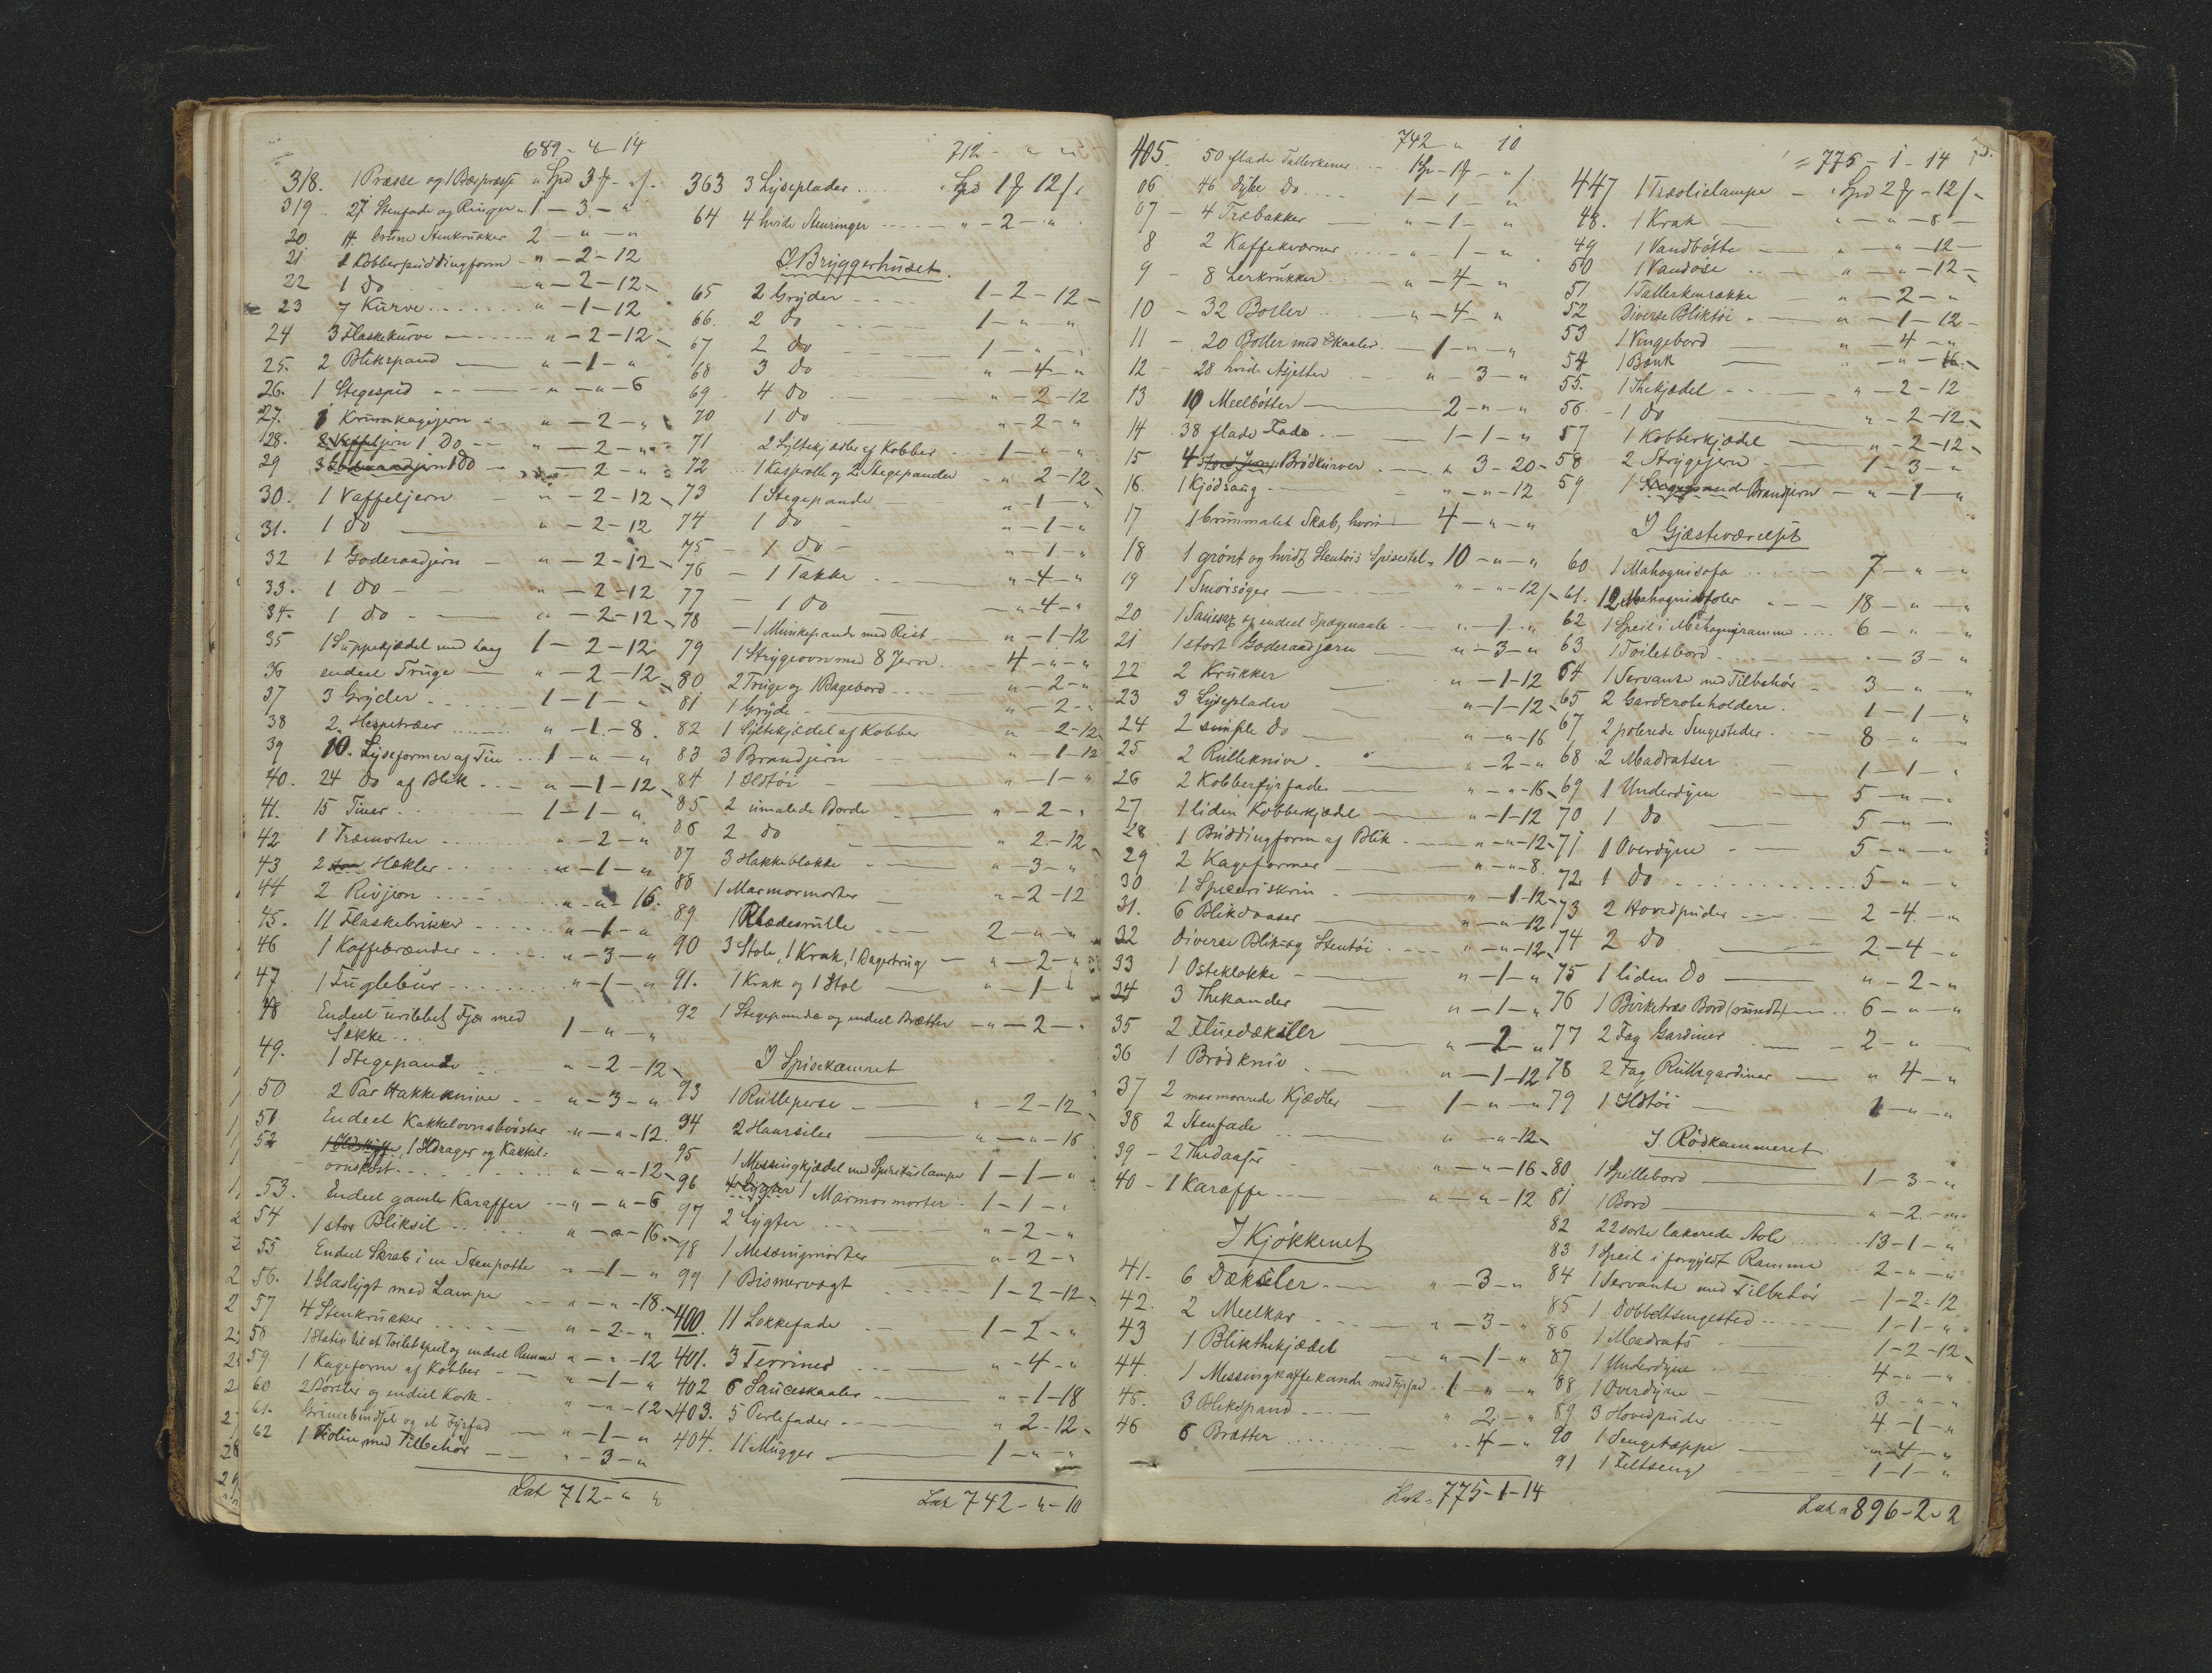 689 - 4 - 14
318. 1 Presse og 1 Bærpresse " Spd 3 # - " /-
319. 27 Stenfade og Ringer " 1 - 3 - "
20. 14 brune Stenkrukker 2 - " - "
21 1 Kobberpuddingform - " - 2 - 12
22 1 do - " - 2 - 12
23 7 Kurve " - 1 - 12
24 3 Flaskekurve " - 2 - 12
25. 2 Blikspand " - 1 - "
26. 1 Stegespid " - " - 6
27. 1 Krumkagejern " - 2 - "
28. 1 do " - 2 - "
29 1 do " - 2 - "
30. 1 Vaffeljern " - 2 - 12
31. 1 do " - 2 - 12
32 1 Goderaadjern " - 2 - 12
33. 1 do " - 2 - 12
34. 1 do " - 2 - 12
35 1 Suppekjædel med Laag 1 - 2 - 12
36 endeel Truge " - 2 - 12
37 3 Gryder 1 - 1 - "
38 2 Hespetræer " - 1 - 8
39 10. Lyseformer af Tin 1 - " - "
40. 24 do af Blik " - 1 - 12
41. 15 Tiner 1 - 1 - "
42 1 Træmorter " - 2 - "
43 2 Hekler " - 1 - "
44 2 Rivjern " - " - 16.
45. 11 Flaskebrikker " - 1 - "
46 1 Kaffebrænder " - 3 - "
47 1 Fuglebuur " - 1 - "
48 Endeel uribbet Fjær med
Sække 1 - " - "
49. 1 Stegepande " - 2 - 12
50 2 Par Hakkeknive " - 3 - "
51 Endeel Kakkelovnsbørster " - " - 12.
52 1 Ildrager og Kakkel-
ovnskost " - " - 12
53. Endeel gamle Karaffer " - " - 6
54 1 stor Bliksil " - " - 16.
55 Endeel Skrab i en Stenpotte " - 1 - "
56. 1 Glaslygt med Lampe " - " - 18.
57 4 Stenkrukker " - 2 - "
58 1 Stativ til et Toiletspeil og endeel Remme " - " - 12
59 1 Kageform af Kobber " - 1 - "
60 2 Børster og endeel Kork " - " - 12
61. Grimebindsel og et Fyrfad " - 1 - "
62 1 Violin med Tilbehør " - 3 - "
Lat 712 - " "
712 - " "
363 3 Lyseplader " Spd 1 # 12 /-
64 4 hvide Stenringer " - 2 - "
I Bryggerhuset.
65 2 Gryder 1 - 2 - 12
66. 2 do 1 - " "
67 2 do 1 - " - "
68 3 do " - 4 - "
69 4 do " - 2 - 12
70 1 do " - 2 - "
71 2 Syltekjedler af Kobber 1 - " - "
72 1 Kasserolle og 2 Stegepander " 2 - 12
73 1 Stegepande " - 1 - "
74 1 do " - 1 - "
75 1 do " - 1 - "
76 1 Takke " - 4 - "
77 1 do " - 4 - "
78 1 Munkepande med Rist " - 1 - 12
79 1 Strygeovn med 8 Jern 4 - " - "
80 2 Truge og 1 Bagebord " - 2 - "
81 1 Gryde " - 2 - "
82 1 Syltekjædel af Kobber " 2 - 12
83 3 Brandjern " - 1 - 12
84 1 Ildtøi " - 1 - "
85 2 umalede Borde " - 2 - "
86 2 do " 2 - 12
87 3 Hakkeblokke " - 3 - "
88 1 Marmormorter " - 2 - 12
89 1 Klædesrulle 2 - " - "
90 3 Stole, 1 Krak, 1 Bagetrug " - 2 - "
91. 1 Krak og 1 Stol " - 1 - "
92 1 Stegepande og endeel Brætter " - 2 - "
I Spisekamret
93 1 Rulleperse " - 2 - 12
94 2 Haarsiler " - " - 16
95 1 Messingkjædel med Spirituslampe 1 - 1 - "
96 1 Marmormorter 1 - 1 - "
97 2 Lygter " - 2 - "
98 1 Messingmorter " - 2 - "
99 1 Bismervægt 1 - 2 - 12
400. 11 Lokkefade 1 - 2 - "
401. 3 Terriner " - 4 - "
402 6 Sauceskaaler " - 1 - 18
403. 5 Perlefader " 2 - 12
404. 11 Mugger 1 - " - "
Lat 742 - " - 10
742 " 10
405. 50 flade Tallerkener 1 Sp - 1 # - " /-
06 46 dybe do 1 - 1 - "
07 4 Træbakker " - 1 - "
8 2 Kaffekværner " - 1 - "
9 8 Lerkrukker " - 4 - "
10 32 Boller " - 4 - "
11 20 Boller med Skaaler 1 - " - "
12 28 hvide Asjetter " - 3 - "
13 10 Meelbøtter 2 - " - "
14 38 flade Fade 1 - 1 - "
15 4 Brødkurver " 3 - 20
16. 1 Kjødsaug " - " - 12
17 1 brunmalet Skab, hvori 4 - " - "
18 1 grønt og hvidt Stentøis Spisestel " 10 - " - "
19 1 Smørsøger " - " - 12
20 " - 1 - "
21 1 stort Goderaadjern " - 3 - "
22 2 Krukker " - 1 - 12
23 3 Lyseplader " - 1 - 12
24 2 simple do " - " - 16
25 2 Rulleknive " - 2 - "
26 2 Kobberfyrfade " - " - 16
27 1 liden Kobberkjædel " - 1 - 12
28 1 Buddingform af Blik " - " - 12
29 2 Kageformer " - " - 8.
30. 1 Speceriskrin " - 1 - 12
31. 6 Blikdaaser " - " - 12
32 diverse Blik og Stentøi " - " - 12
33 1 Osteklokke " - 1 - "
34 3 Thekander " - 1 - "
35 2 Fluedæksler " - 2 - "
36 1 Brødkniv " - 1 - 12
37 2 marmorerede Kjædler 1 - " - "
38 2 Stenfade " - " - 12
39 2 Thedaaser " - " - 16
40 1 Karaffe " - " - 12
I Kjøkkenet
41. 6 Dæksler " - 3 - "
42. 2 Meelkar " - 3 - "
43 1 Blikthekjædel " - 1 - "
44. 1 Messingkaffekande med Fyrfad 1 - " - "
45. 3 Blikspand " 2 - "
46 6 Brætter " - 4 - "
Lat " 775 - 1 - 14
= 775 - 1 - 14
447 1 Træolielampe " Spd 2 # - 12 /-
48. 1 Krak " - " - 8
49 1 Vandbøtte " - " - 12
50 1 Vandøse " - " - 12
51 1 Tallerkenrække " - 2 - "
52 Diverse Bliktøi " - 1 - 12
53 1 Vingebord " - 4 - "
54 1 Bænk " - " - 16
55. 1 Thekjædel " - 2 - 12
56. 1 do " - 2 - 12
57 1 Kobberkjædel " - 2 - 12
58 2 Strygejern 1 - 3 - "
59 1 Brandjern " - 1 - "
I Gjæsteværelset
60 1 Mahognisofa 7 - " - "
61. 12 Mahognistoler 18 - " - "
62 1 Speil i Mahogniramme 6 - " - "
63 1 Toiletbord " - 3 - "
64 1 Servante med Tilbehør 3 - " - "
65 2 Garderobeholdere 1 - 1 - "
67 2 polerede Sengesteder 8 - " - "
68 2 Madratser 1 - 1 - "
69 1 Underdyne 5 - " - "
70 1 do 5 - " - "
71 1 Overdyne 5 - " - "
72 1 do 5 - " - "
73 2 Hovedpuder 2 - 4 - "
74 2 do 2 - 4 - "
75 1 liden do " - 2 - "
76 1 Birketræs Bord (rundt) 6 - " - "
77 2 Fag Gardiner 2 - " -
78 2 Fag Rullegardiner " 4 - "
79 1 Ildtøi 1 - " - "
I Rødkammeret
80 1 Spillebord 1 - 3 - "
81 1 Bord " - 2 - "
82 22 sorte lakerede Stole 13 - 1 - "
83 1 Speil i forgyldt Ramme 2 - " - "
84 1 Servante med Tilbehør 1 - 2 - 12
85 1 Dobbeltsengested 1 - 1 - "
86 1 Madrats 1 - 2 - 12
87 1 Underdyne 4 - " - "
88 1 Overdyne 3 - " - "
89 3 Hovedpuder 4 - 1 - "
90 1 Sengetæppe " - 4 - "
91 1 Feltseng 1 - 1 - "
Lat " 896 - 2 - 2